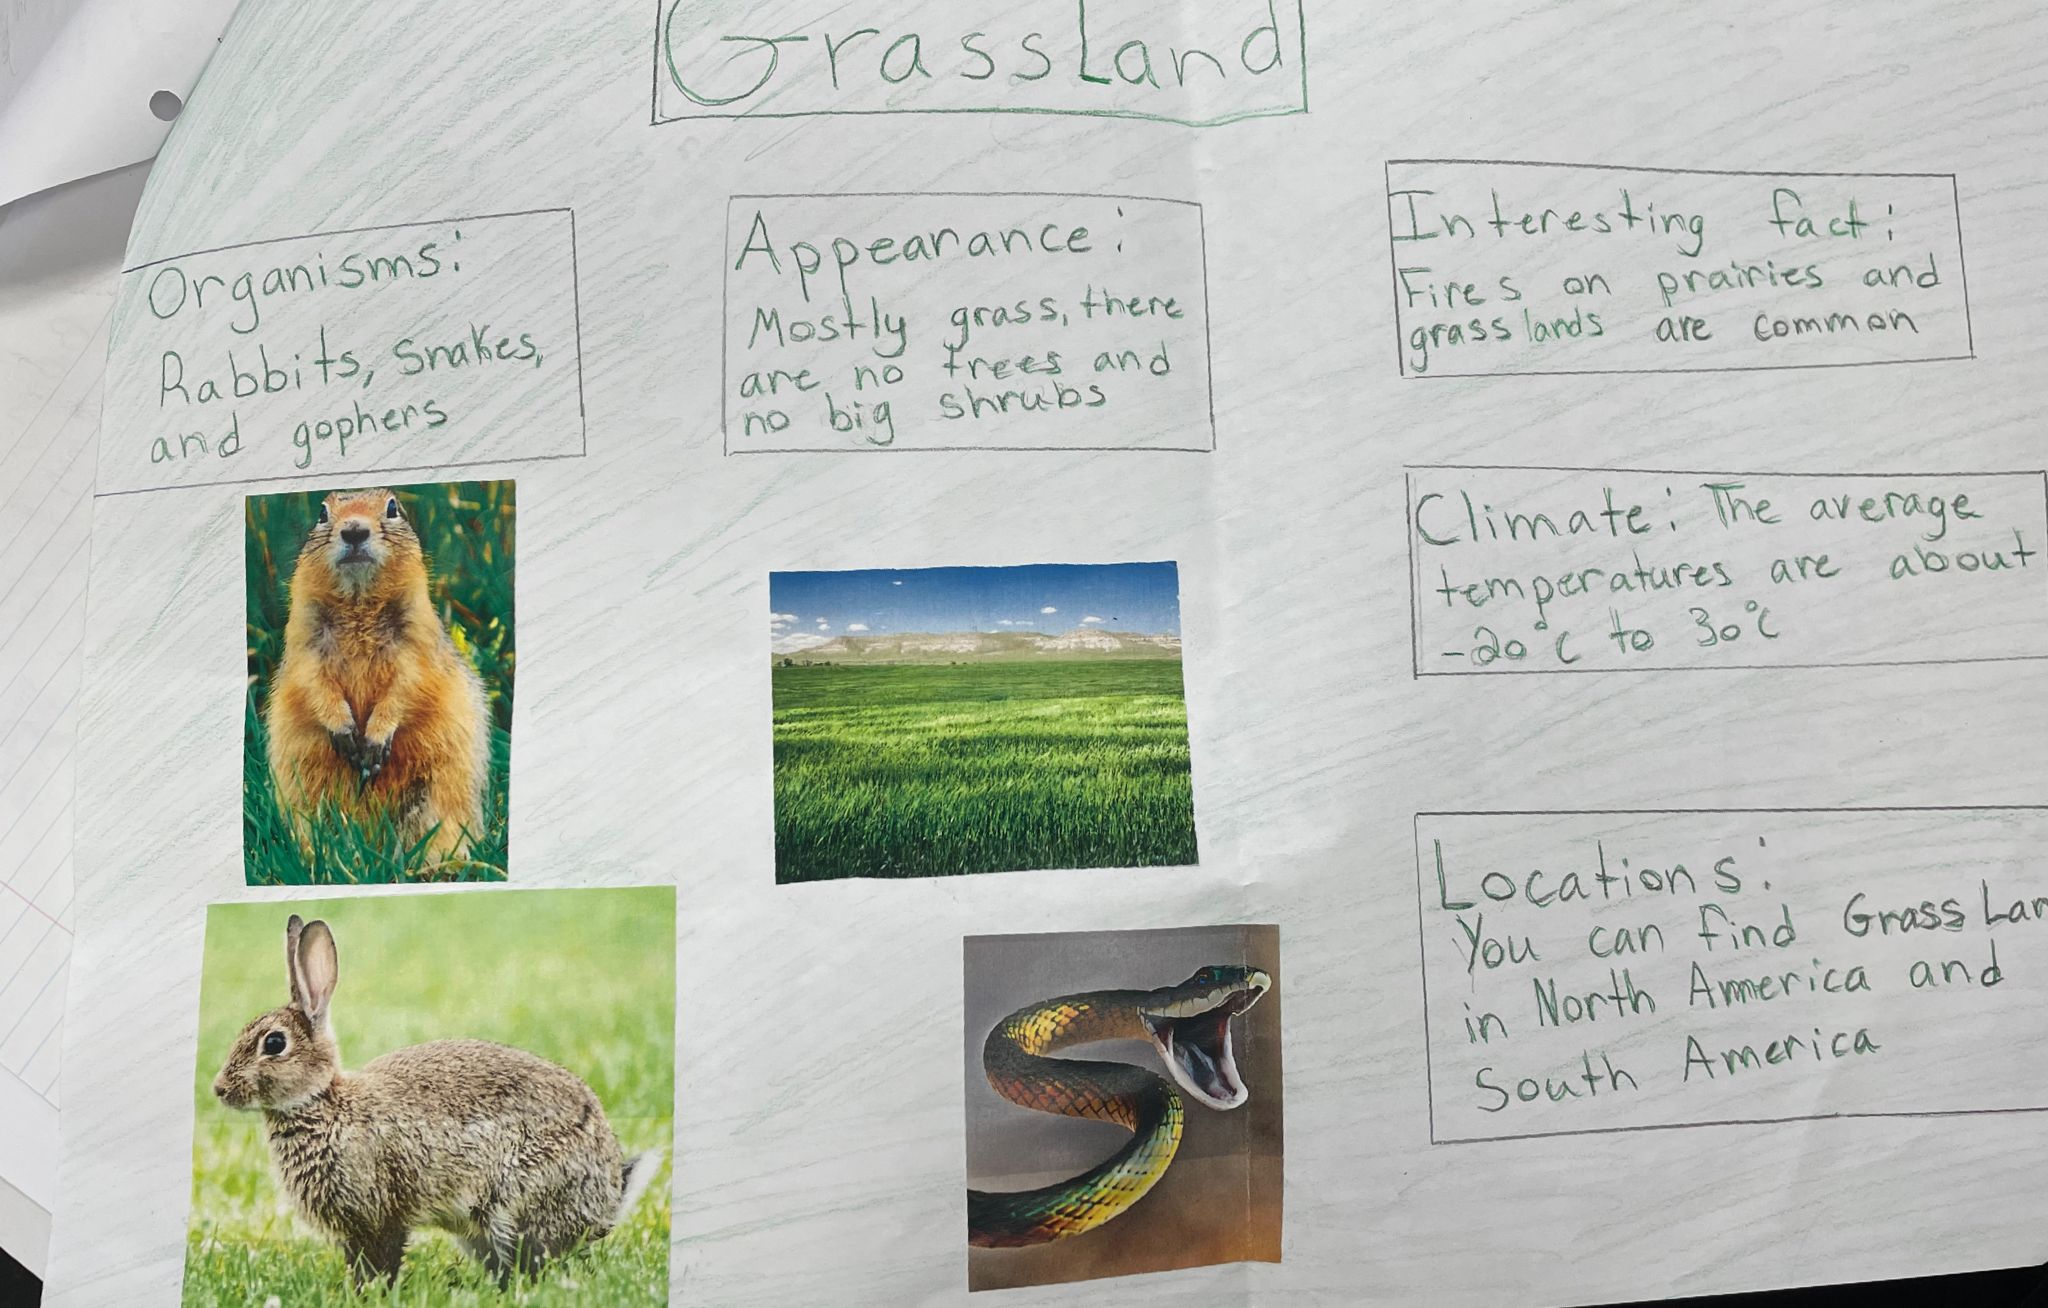 GrassLand
Organisms:
Rabbits, snakes,
and gophers
Appearance:
Mostly grass, there
are no trees and
no big shrubs
Interesting fact:
Fires on prairies and
grasslands are common
Climate: The average
temperatures are about
-20°C to 30°C
Locations:
You can find GrassLan
in North America and
South America